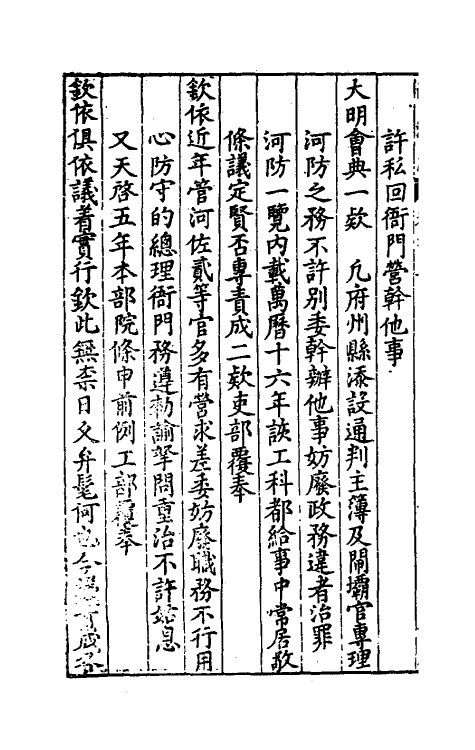 許私回衙門營幹他事
大明會典一欵　凢府州縣添設通判主簿及閘壩官專理
河防之務不許别委幹辦他事妨廢政務違者治罪
河防一覽内載萬曆十六年該工科都給事中常居敬
條議定賢否專責成二欵吏部覆奉
欽依近年管河佐貳等官多有營求差委妨廢職務不行用
心防守的總理衙門務遵勅諭拏問重治不許姑息
又天啓五年本部院條申前例工部覆奉
欽依俱依議著實行欽此無柰日久弁髦何也今